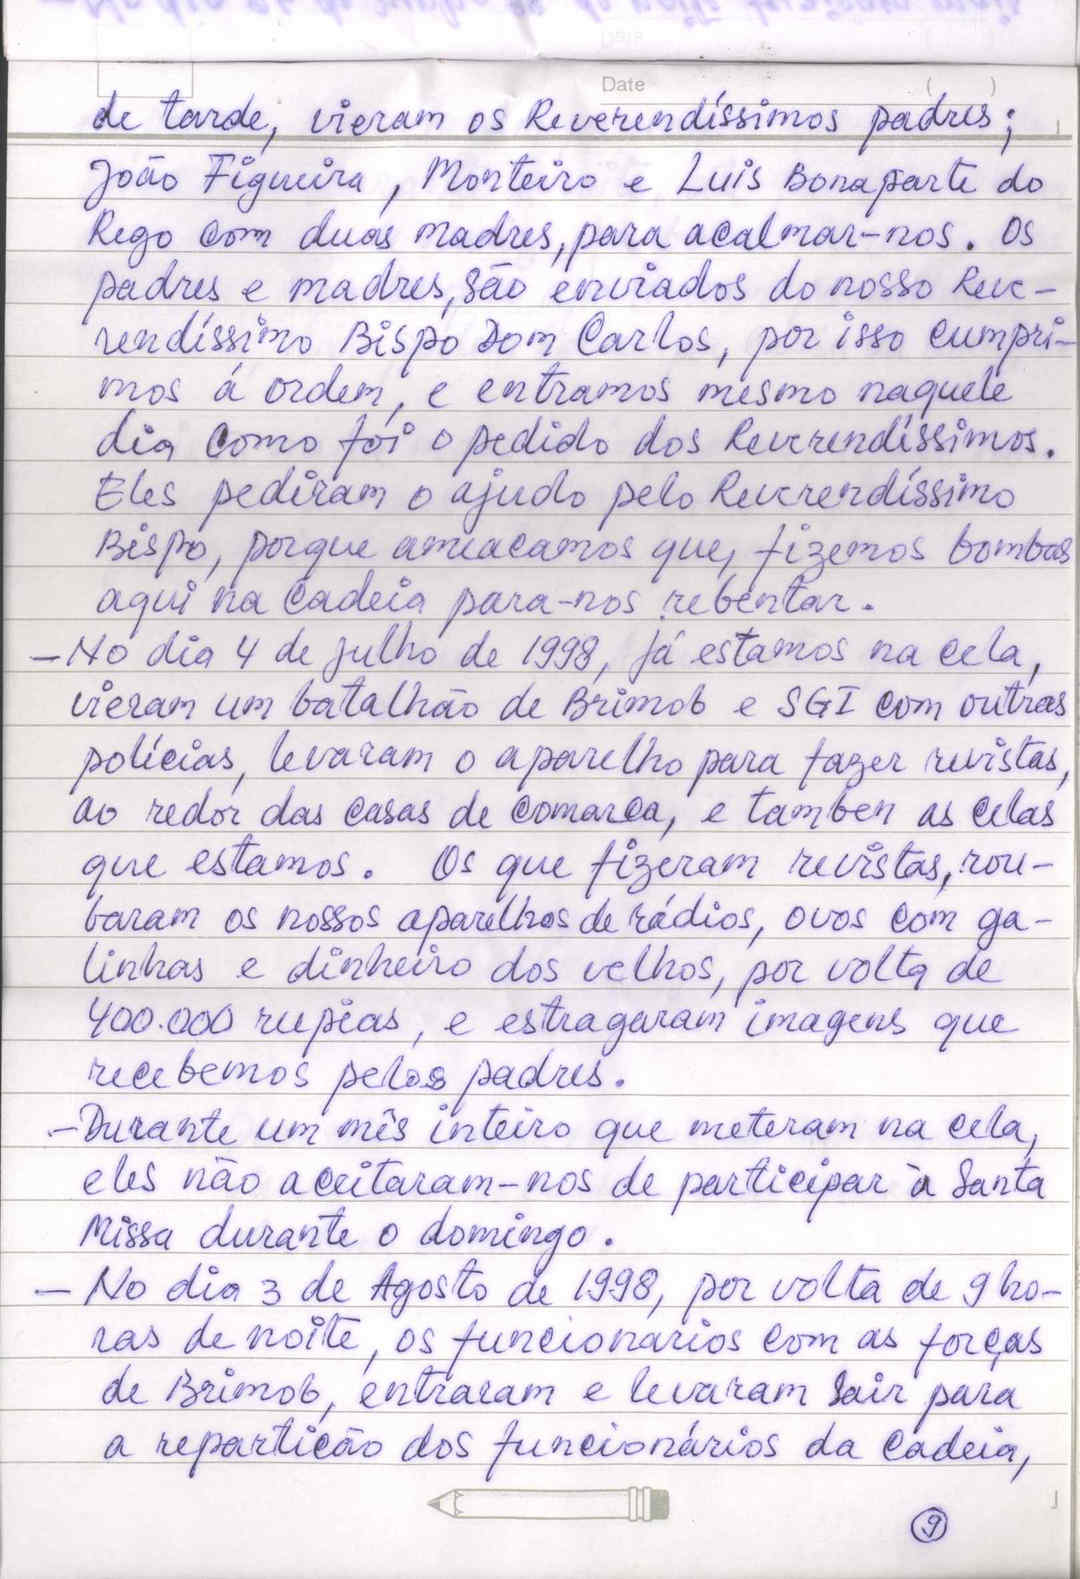 Date ( )
de tarde, vieram os Reverendíssimos padres;
João Figueira, Monteiro e Luis Bonaparte do
Rego com duas madres, para acalmar-nos. Os
padres e madres, são enviados do nosso Reve-
rendíssimo Bispo Dom Carlos, por isso cumpri-
mos á ordem, e entramos mesmo naquele
dia como foi o pedido dos Reverendíssimos.
Eles pediram o ajudo pelo Reverendíssimo
Bispo, porque ameacamos que, fizemos bombas
aqui na cadeia para-nos rebentar.
- No dia 4 de julho de 1998, já estamos na cela,
vieram um batalhão de Brimob e SGI com outras
polícias, levaram o aparelho para fazer revistas,
ao redor das casas de comarca, e tamben as celas
que estamos. Os que fizeram revistas, rou-
baram os nossos aparelhos de rádios, ovos com ga-
linhas e dinheiro dos velhos, por volta de
400.000 rupias, e estragaram imagens que
recebemos pelos padres.
- Durante um mês inteiro que meteram na cela,
eles não aceitaram-nos de participar à Santa
Missa durante o domingo.
- No dia 3 de Agosto de 1998, por volta de 9 ho-
ras de noite, os funcionarios com as forças
de Brimob, entraram e levaram sair para
a reparticão dos funcionários da cadeia,
9